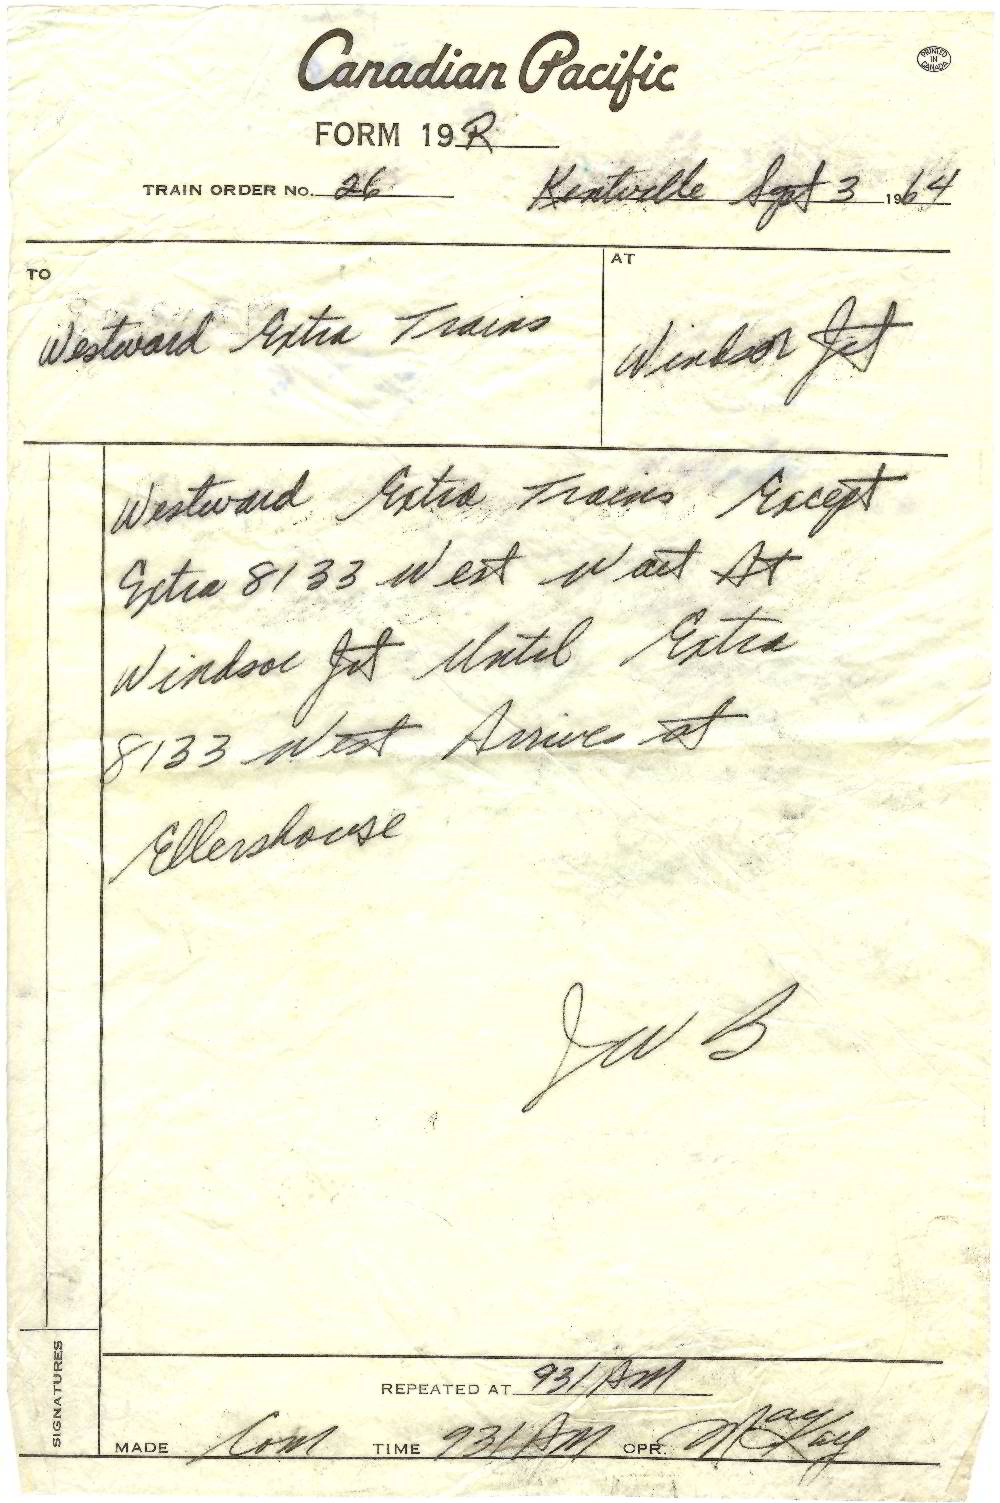 Canadian Pacific
PRINTED IN CANADA
FORM 19 R
TRAIN ORDER No. 26 Kentville Sept 3 1964
TO
AT
Westward Extra Trains
Windsor Jct
Westward Extra Trains Except
Extra 8133 West Wait At
Windsor Jct Until Extra
8133 West Arrives at
Ellershouse
JWB
SIGNATURES
REPEATED AT 931 AM
MADE Com TIME 931 AM OPR. MacKay